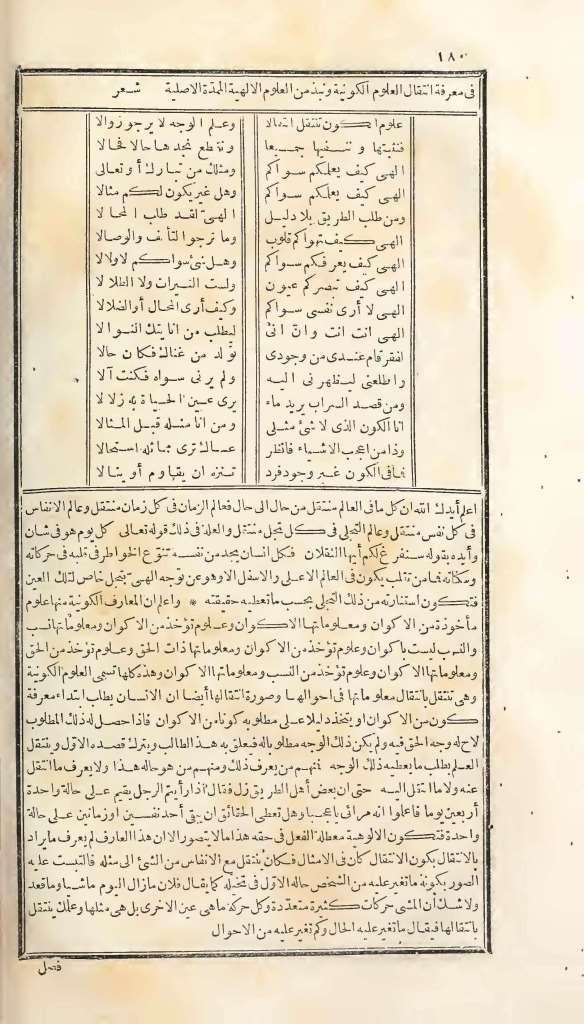 ١٨٠
فى معرفة انتقال العلوم الكونية ونبذ من العلوم الالهية الممدة الاصلية شعر
علوم الكون تنتقل انتقالا وعلم الوجه لا يرجو زوالا
فنثبتها وننفيها جميعا ونقطع نجدها حالا فحالا
الهى كيف يعلمكم سواكم ومثلك من تبارك أو تعالى
الهى كيف يعلمكم سواكم وهل غير يكون لكم مثالا
ومن طلب الطريق بلا دليل الهى لقد طلب المحالا
الهى كيف تهواكم قلوب وما ترجو التألف والوصالا
الهى كيف يعرفكم سواكم وهل شئ سواكم لا ولا لا
الهى كيف تبصركم عيون ولست النيرات ولا الظلالا
الهى لا أرى نفسى سواكم وكيف أرى المحال أو الضلالا
الهى أنت أنت وان انى ليطلب من انا يتك النوالا
لفقر قام عندى من وجودى تولد من غناك فكان حالا
وأطلعنى ليظهر نى اليه ولم يرنى سواه فكنت آلا
ومن قصد السراب يريد ماء يرى عين الحياة به زلالا
انا الكون الذى لا شئ مثلى ومن انا مثله قبل المثالا
وذا من أعجب الاشياء فانظر عساك ترى مماثله استحالا
فما فى الكون غير وجود فرد تنزه ان يقاوم أو ينالا
اعلم أيدك الله ان كل ما فى العالم منتقل من حال الى حال فعالم الزمان فى كل زمان منتقل وعالم الانفاس
فى كل نفس منتقل وعالم التجلى فى كل تجل منتقل والعلة فى ذلك قوله تعالى كل يوم هو فى شان
وأيده بقوله سنفرغ لكم أيها الثقلان فكل انسان يجد من نفسه تنوع الخواطر فى قلبه فى حركاته
وسكناته فما من تقلب يكون فى العالم الاعلى والاسفل الا وهو عن توجه الهى بتجل خاص لتلك العين
فتكون استنارته من ذلك التجلى بحسب ما تعطيه حقيقته * واعلم ان المعارف الكونية منها علوم
مأخوذة من الاكوان ومعلوماتها الاكوان وعلوم تؤخذ من الاكوان ومعلوماتها نسب
والنسب ليست باكوان وعلوم تؤخذ من الاكوان ومعلوماتها ذات الحق وعلوم تؤخذ من الحق
ومعلوماتها الاكوان وعلوم تؤخذ من النسب ومعلوماتها الاكوان وهذه كلها تسمى العلوم الكونية
وهى تنتقل بانتقال معلوماتها فى احوالها وصورة انتقالها أيضا ان الانسان يطلب ابتداء معرفة
كون من الاكوان او يتخذ دليلا على مطلوبه كونا من الاكوان فاذا حصل له ذلك المطلوب
لاح له وجه الحق فيه ولم يكن ذلك الوجه مطلوبا له فيعلق به هذا الطالب ويترك قصده الاول وينتقل
العلم يطلب ما يعطيه ذلك الوجه فمنهم من يعرف ذلك ومنهم من هو حاله هذا ولا يعرف ما انتقل
عنه ولا ما انتقل اليه حتى ان بعض أهل الطريق زل فقال اذا رأيتم الرجل يقيم على حالة واحدة
أربعين يوما فاعلموا انه مرائى يا عجبا وهل تعطى الحقائق ان يبقى أحد نفسين او زمانين على حالة
واحدة فتكون الالوهية معطلة الفعل فى حقه هذا ما لا يتصور الا ان هذا العارف لم يعرف ما يراد
بالانتقال بكون الانتقال كان فى الامثال فكان ينتقل مع الانفاس من الشئ الى مثله فالتبست عليه
الصور بكونه ما تغير عليه من الشخص حاله الاول فى تخيله كما يقال فلان ما زال اليوم ماشيا وما قعد
ولا شك أن المشى حركات كثيرة متعددة وكل حركة ما هى عين الاخرى بل هى مثلها وعلمك ينتقل
بانتقالها فيقال ما تغير عليه الحال وكم تغير عليه من الاحوال
فصل